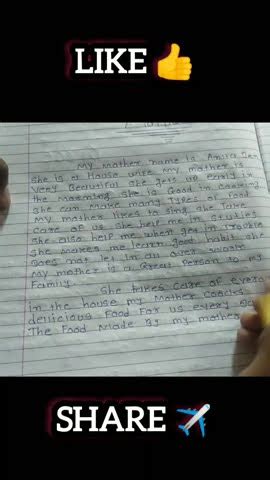 LIKE 👍
My mother name is Anura Jen
She is a House wife my mother is
Very Beautiful She gets up early in
the Morning She is Good in cooking
She can make many Types of Food
My mother likes to sing She Take
Care of us She help me in Studies
She also help when I get in Trouble
She makes me learn good habit she
Does not let in an over
My mother is a Great Person to my
Family.
She takes care of
in the house my mother cookies
delicious Food For us every
The Food made By my mother
SHARE ✈️